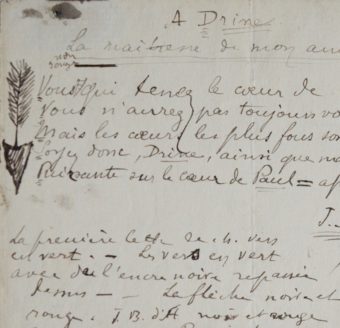 A Drine
La maitresse de mon am
non
rouge
Vous qui tenez le cœur de
Vous n'aurez pas toujours vo
Mais les cœurs les plus fous son
Soyez donc, Drine, ainsi que ma
Puissante sur le cœur de Paul = a
J.
La première lettre de ch. vers
est vert. — Les vers en vert
avec de l'encre noire repassée
dessus — La flèche noire et
rouge. J. B. d'A noir et rouge